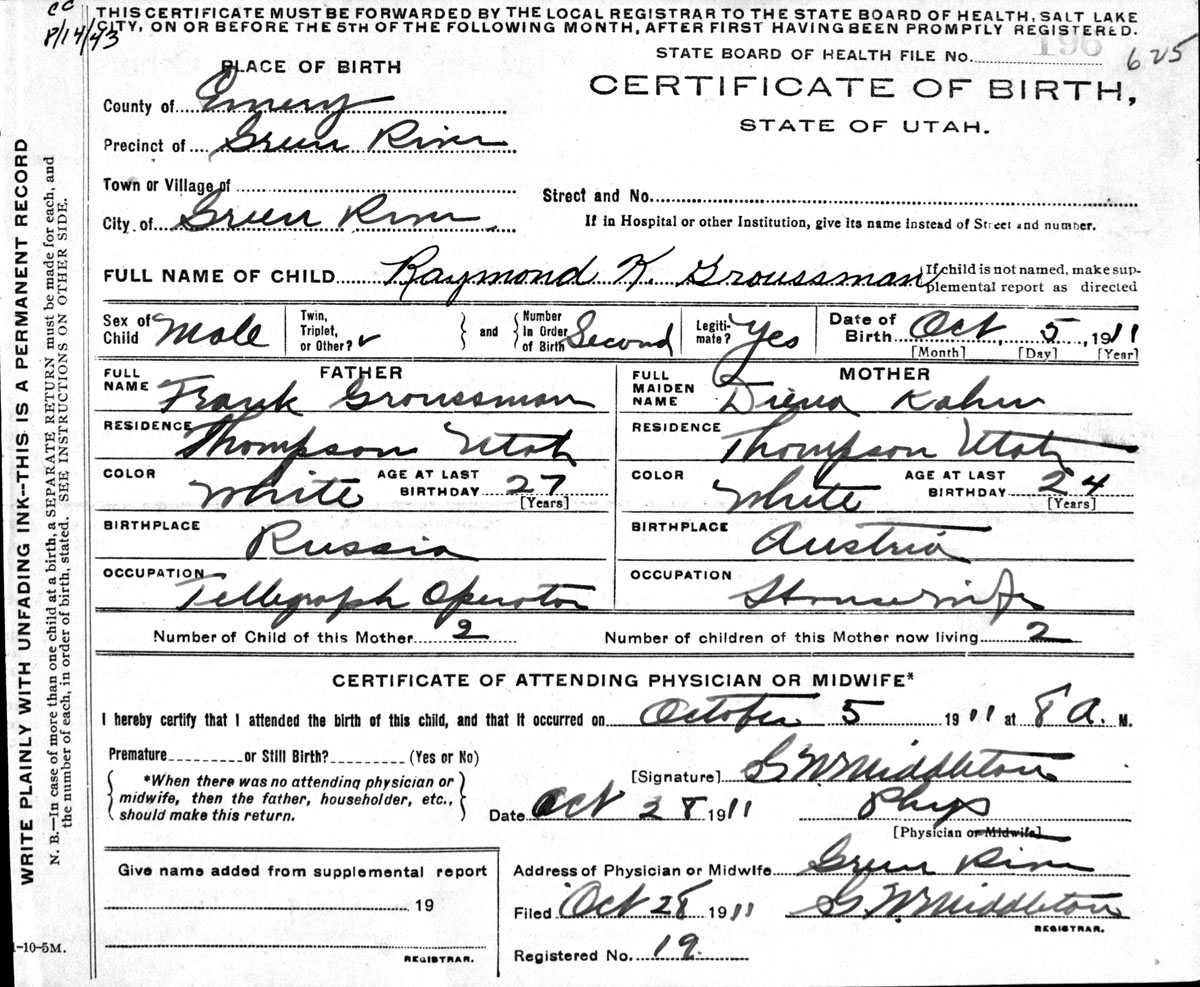 cc
8/14/43
THIS CERTIFICATE MUST BE FORWARDED BY THE LOCAL REGISTRAR TO THE STATE BOARD OF HEALTH, SALT LAKE
CITY, ON OR BEFORE THE 5TH OF THE FOLLOWING MONTH, AFTER FIRST HAVING BEEN PROMPTLY REGISTERED.
STATE BOARD OF HEALTH FILE No. 196 625
PLACE OF BIRTH
CERTIFICATE OF BIRTH,
STATE OF UTAH.
County of Emery
Precinct of Green River
Town or Village of
Street and No.
City of Green River
If in Hospital or other Institution, give its name instead of Street and number.
FULL NAME OF CHILD Raymond K. Groussman
If child is not named, make sup-
plemental report as directed
Sex of Child Male
Twin, Triplet, or Other? and Number in Order of Birth Second
Legiti-mate? Yes
Date of Birth Oct 5, 1911
[Month] [Day] [Year]
FATHER
FULL NAME Frank Groussman
RESIDENCE Thompson Utah
COLOR White AGE AT LAST BIRTHDAY 27 [Years]
BIRTHPLACE Russia
OCCUPATION Tellegraph Operator
MOTHER
FULL MAIDEN NAME Diena Kahn
RESIDENCE Thompson Utah
COLOR White AGE AT LAST BIRTHDAY 24 [Years]
BIRTHPLACE Austria
OCCUPATION Housewife
Number of Child of this Mother 2 Number of children of this Mother now living 2
CERTIFICATE OF ATTENDING PHYSICIAN OR MIDWIFE*
I hereby certify that I attended the birth of this child, and that it occurred on October 5 1911 at 8 A. M.
Premature or Still Birth? (Yes or No)
*When there was no attending physician or
midwife, then the father, householder, etc.,
should make this return.
[Signature] G W Middleton
Date Oct 28 1911 Phys
[Physician or Midwife]
Give name added from supplemental report
19
REGISTRAR.
Address of Physician or Midwife Green River
Filed Oct 28 1911 G W Middleton
REGISTRAR.
Registered No. 19
WRITE PLAINLY WITH UNFADING INK--THIS IS A PERMANENT RECORD
N. B.—In case of more than one child at a birth, a SEPARATE RETURN must be made for each, and
the number of each, in order of birth, stated. SEE INSTRUCTIONS ON OTHER SIDE.
1-10-5M.